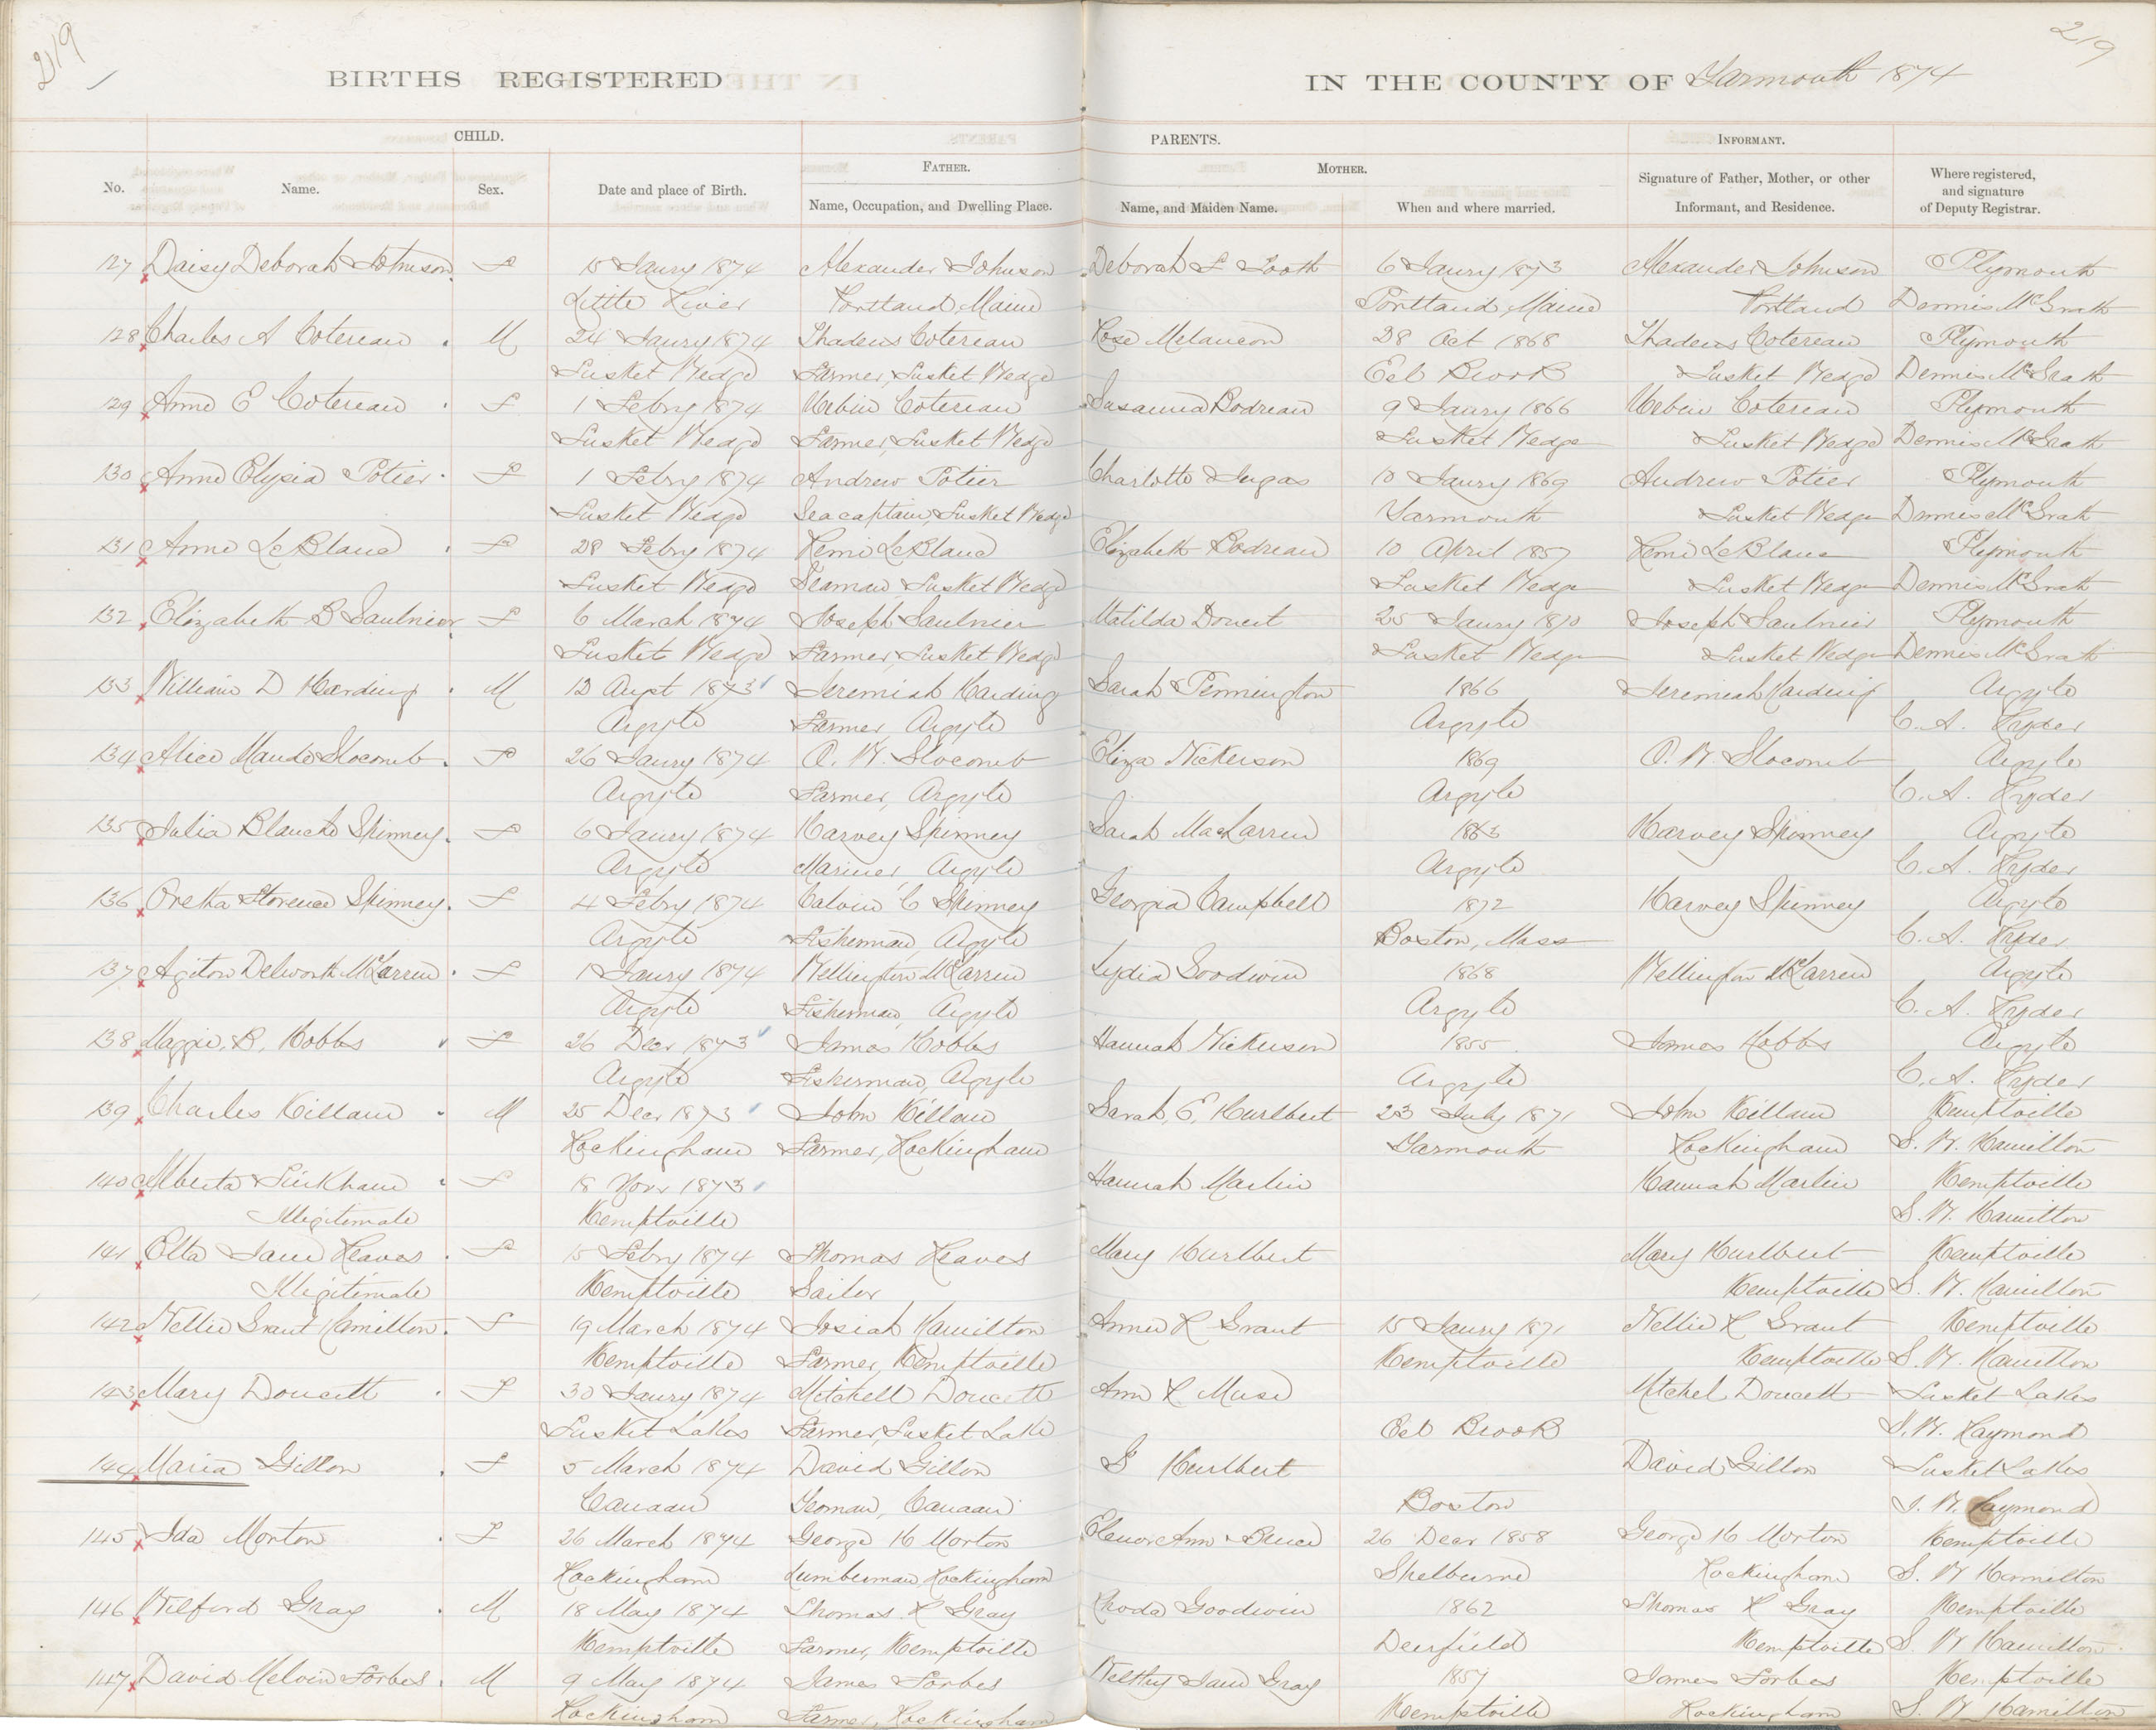 219
219
BIRTHS REGISTERED IN THE COUNTY OF Yarmouth 1874
CHILD. PARENTS. INFORMANT.
No. Name. Sex. Date and place of Birth. FATHER. Name, Occupation, and Dwelling Place. MOTHER. Name, and Maiden Name. When and where married. Signature of Father, Mother, or other Informant, and Residence. Where registered, and signature of Deputy Registrar.
127 Daisy Deborah Johnson F 15 Jaury 1874 Alexander Johnson Deborah L Tooth 6 Jaury 1873 Alexander Johnson Plymouth
Little River Portland, Maine Portland, Maine Portland Dennis McGrath
128 Charles A Cotereau M 24 Jaury 1874 Thadeus Cotereau Rose Melancon 28 Oct 1868 Thadeus Cotereau Plymouth
Tusket Wedge Farmer, Tusket Wedge Eel Brook Tusket Wedge Dennis McGrath
129 Anne E Cotereau F 1 Febry 1874 Urbin Cotereau Susanna Bodreau 9 Jaury 1866 Urbin Cotereau Plymouth
Tusket Wedge Farmer, Tusket Wedge Tusket Wedge Tusket Wedge Dennis McGrath
130 Anne Elysia Potier F 1 Febry 1874 Andrew Potier Charlotte Dugas 10 Jaury 1869 Andrew Potier Plymouth
Tusket Wedge Seacaptain, Tusket Wedge Yarmouth Tusket Wedge Dennis McGrath
131 Anne LeBlanc F 28 Febry 1874 Remi LeBlanc Elizabeth Bodreau 10 April 1857 Remi LeBlanc Plymouth
Tusket Wedge Seaman, Tusket Wedge Tusket Wedge Tusket Wedge Dennis McGrath
132 Elizabeth B Saulnier F 6 March 1874 Joseph Saulnier Matilda Doucet 25 Jaury 1870 Joseph Saulnier Plymouth
Tusket Wedge Farmer, Tusket Wedge Tusket Wedge Tusket Wedge Dennis McGrath
133 William D Harding M 12 Augst 1873 Jeremiah Harding Sarah Pennington 1866 Jeremiah Harding Argyle
Argyle Farmer, Argyle Argyle C. A. Ryder
134 Alice Maude Slocomb F 26 Jaury 1874 O. W. Slocomb Eliza Nickerson 1869 O. W. Slocomb Argyle
Argyle Farmer, Argyle Argyle C. A. Ryder
135 Julia Blanche Spinney F 6 Jaury 1874 Harvey Spinney Sarah MacLarren 1863 Harvey Spinney Argyle
Argyle Mariner, Argyle Argyle C. A. Ryder
136 Oretha Florence Spinney F 4 Febry 1874 Calvin C Spinney Georgia Campbell 1872 Harvey Spinney Argyle
Argyle Fisherman, Argyle Boston, Mass C. A. Ryder
137 Agiton Delworth McLarren F 1 Jaury 1874 Wellington McLarren Lydia Goodwin 1868 Wellington McLarren Argyle
Argyle Fisherman, Argyle Argyle C. A. Ryder
138 Maggie. B. Hobbs F 26 Decr 1873 James Hobbs Hannah Nickerson 1855 James Hobbs Argyle
Argyle Fisherman, Argyle Argyle C. A. Ryder
139 Charles Killam M 25 Decr 1873 John Killam Sarah, E, Hurlbert 23 July 1871 John Killam Kemptville
Rockingham Farmer, Rockingham Yarmouth Rockingham S. W. Hamilton
140 Alberta Sinkham F 18 Novr 1873 Hannah Marlin Hannah Marlin Kemptville
Illegitimate Kemptville S. W. Hamilton
141 Etta Jane Reaves F 15 Febry 1874 Thomas Reaves Mary Hurlbert Mary Hurlbert Kemptville
Illegitimate Kemptville Sailor Kemptville S. W. Hamilton
142 Nellie Grant Hamilton F 19 March 1874 Josiah Hamilton Annie R Grant 15 Jaury 1871 Nellie R Grant Kemptville
Kemptville Farmer, Kemptville Kemptville Kemptville S. W. Hamilton
143 Mary Doucett F 30 Jaury 1874 Mitchell Doucett Ann R. Muse Mitchel Doucett Tusket Lakes
Tusket Lakes Farmer, Tusket Lake Eel Brook J. W. Raymond
144 Maria Gillon F 5 March 1874 David Gillon G Hurlbert David Gillon Tusket Lakes
Canaan Yeoman, Canaan Boston J. W. Raymond
145 Ida Morton F 26 March 1874 George H Morton Elenor Ann Bruce 26 Decr 1858 George H Morton Kemptville
Rockingham Lumberman, Rockingham Shelburne Rockingham S. W Hamilton
146 Wilford Gray M 18 May 1874 Thomas. R Gray Rhoda Goodwin 1862 Thomas R Gray Kemptville
Kemptville Farmer, Kemptville Deerfield Kemptville S. W Hamilton
147 David Melvin Forbes M 9 May 1874 James Forbes Welthy Jane Gray 1857 James Forbes Kemptville
Rockingham Farmer, Rockingham Kemptville Rockingham S. W Hamilton